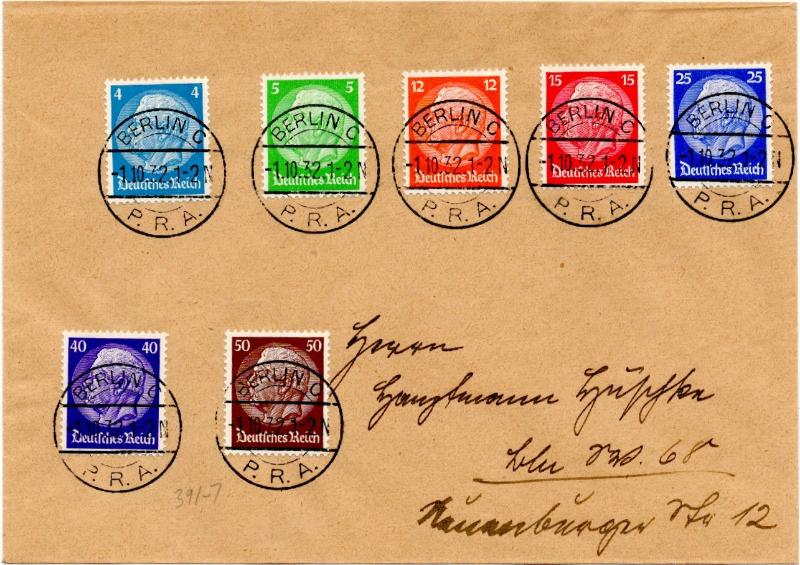 4 4
Deutsches Reich
BERLIN C
-1.10.32.1-2 N
P. R. A.
5 5
Deutsches Reich
BERLIN C
-1.10.32.1-2 N
P. R. A.
12 12
Deutsches Reich
BERLIN C
-1.10.32.1-2 N
P. R. A.
15 15
Deutsches Reich
BERLIN C
-1.10.32.1-2 N
P. R. A.
25 25
Deutsches Reich
BERLIN C
-1.10.32.1-2 N
P. R. A.
40 40
Deutsches Reich
BERLIN C
-1.10.32.1-2 N
P. R. A.
50 50
Deutsches Reich
BERLIN C
-1.10.32.1-2 N
P. R. A.
Herrn
Hauptmann Hüschke
Bln SW. 68
Neuenburger Str 12
391-7